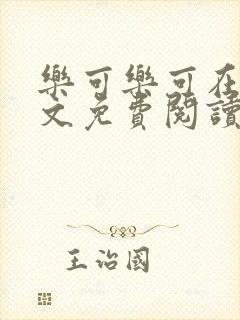 樂可樂可在
文免費閱讀
王治國